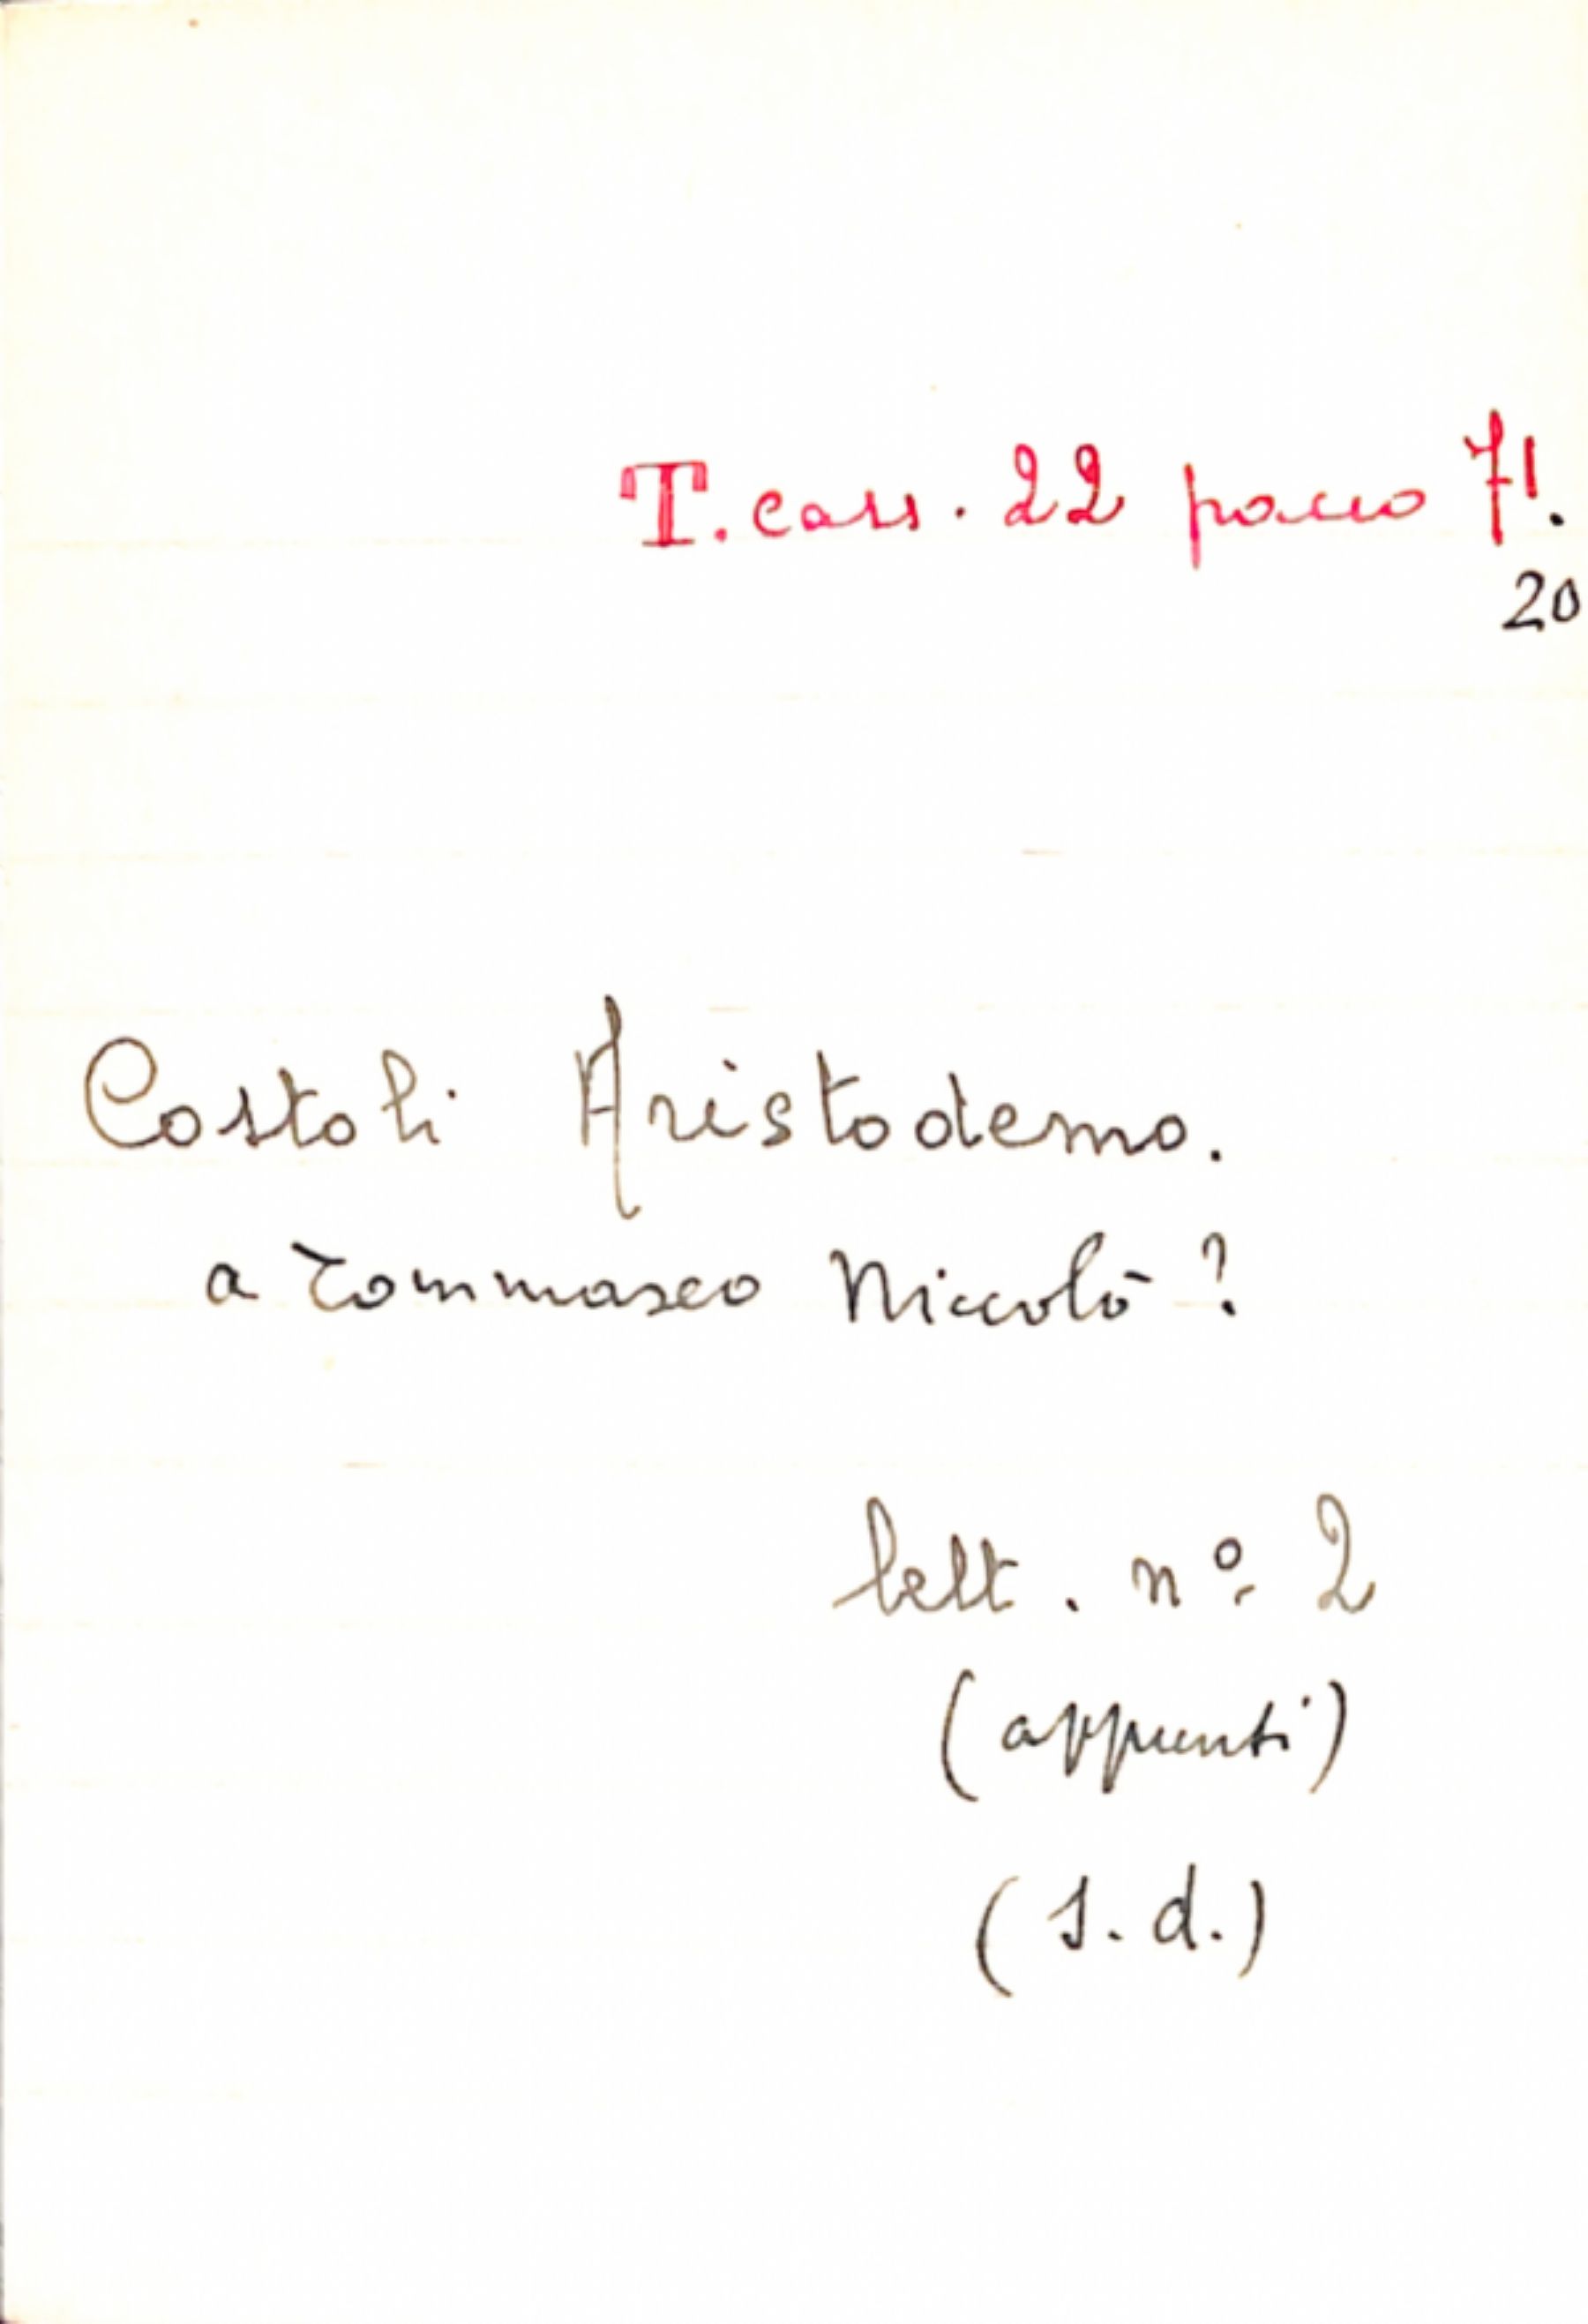 T. cass. 22 pacco 71.
20
Costoli Aristodemo.
a Tommaseo Niccolò ?
lett. nº 2
(appunti)
(s. d.)